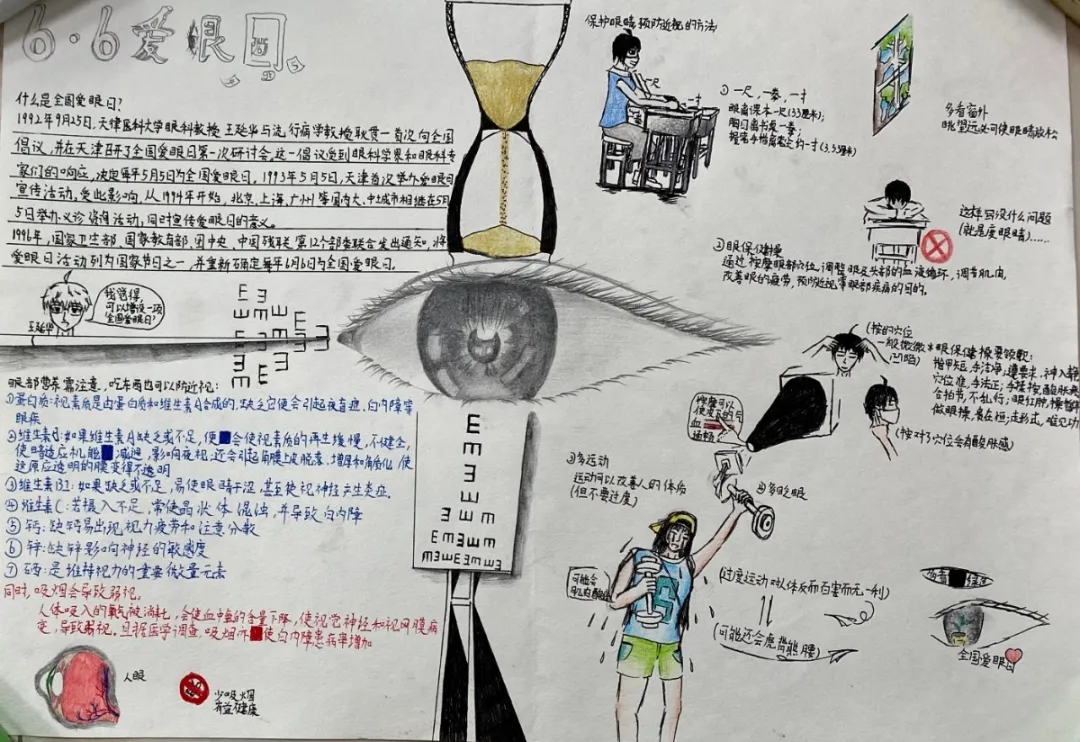 6·6爱眼日
什么是全国爱眼日?
1992年9月25日,天津医科大学眼科教授 王延华与流行病学教授耿贯一首次向全国
倡议,并在天津召开了全国爱眼日第一次研讨会,这一倡议受到眼科学界和眼科专
家们的响应,决定每年5月5日为全国爱眼日。1993年5月5日,天津首次举办爱眼日
宣传活动,受此影响,从1994年开始,北京,上海,广州等国内大、中城市相继在5月
5日举办义诊咨询活动,同时宣传爱眼日的意义。
1996年,国家卫生部、国家教育部、团中央、中国残联等12个部委联合发出通知,将
爱眼日活动列为国家节日之一,并重新确定每年6月6日为全国爱眼日。
我觉得
可以增设一项
全国爱眼日!
王延华
眼部营养需注意,吃东西也可以防近视:
①蛋白质:视紫质是由蛋白质和维生素A合成的,缺乏它便会引起夜盲症,白内障等
眼疾
②维生素A:如果维生素A缺乏或不足,便会使视紫质的再生缓慢,不健全,
使暗适应机能减退,影响夜视,还会引起角膜上皮脱落、增厚和角质化,使
这原应透明的膜变得不透明
③维生素B2:如果缺乏或不足,易使眼睛干涩,甚至使视神经产生炎症.
④维生素C:若摄入不足,常使晶状体混浊,并导致白内障
⑤钙:缺钙易出现视力疲劳和注意分散
⑥锌:缺锌影响神经的敏感度
⑦硒:是维持视力的重要微量元素
同时,吸烟会导致弱视。
人体吸入的氧气被消耗,会使血中的含量下降,使视觉神经和视网膜病
变,导致弱视。且据医学调查,吸烟亦使白内障患病率增加
人眼
少吸烟
有益健康
保护眼睛预防近视的方法
一尺
一寸
①一尺,一拳,一寸
眼离课本一尺(33厘米);
胸口离书桌一拳;
握笔手指离笔尖约一寸(3.3厘米)
多看窗外
眺望远处可使眼睛放松
这样写没什么问题
(就是废眼睛)……
②眼保健操
通过按摩眼部穴位,调整眼及头部的血液循环,调节肌肉,
改善眼的疲劳,预防近视等眼部疾病的目的。
(按的穴位
一般微微
凹陷)
眼保健操要领歌:
指甲短,手洁净;遵要求,神入静
合拍节,不乱行;眼红肿,操暂停
(按对了穴位会有酸胀感)
③多运动
运动可以改善人的体质
(但不要过度)
④多眨眼
可能会
肌肉酸痛
(过度运动对人体反而百害而无一利)
(可能还会虎背熊腰)
全国爱眼日